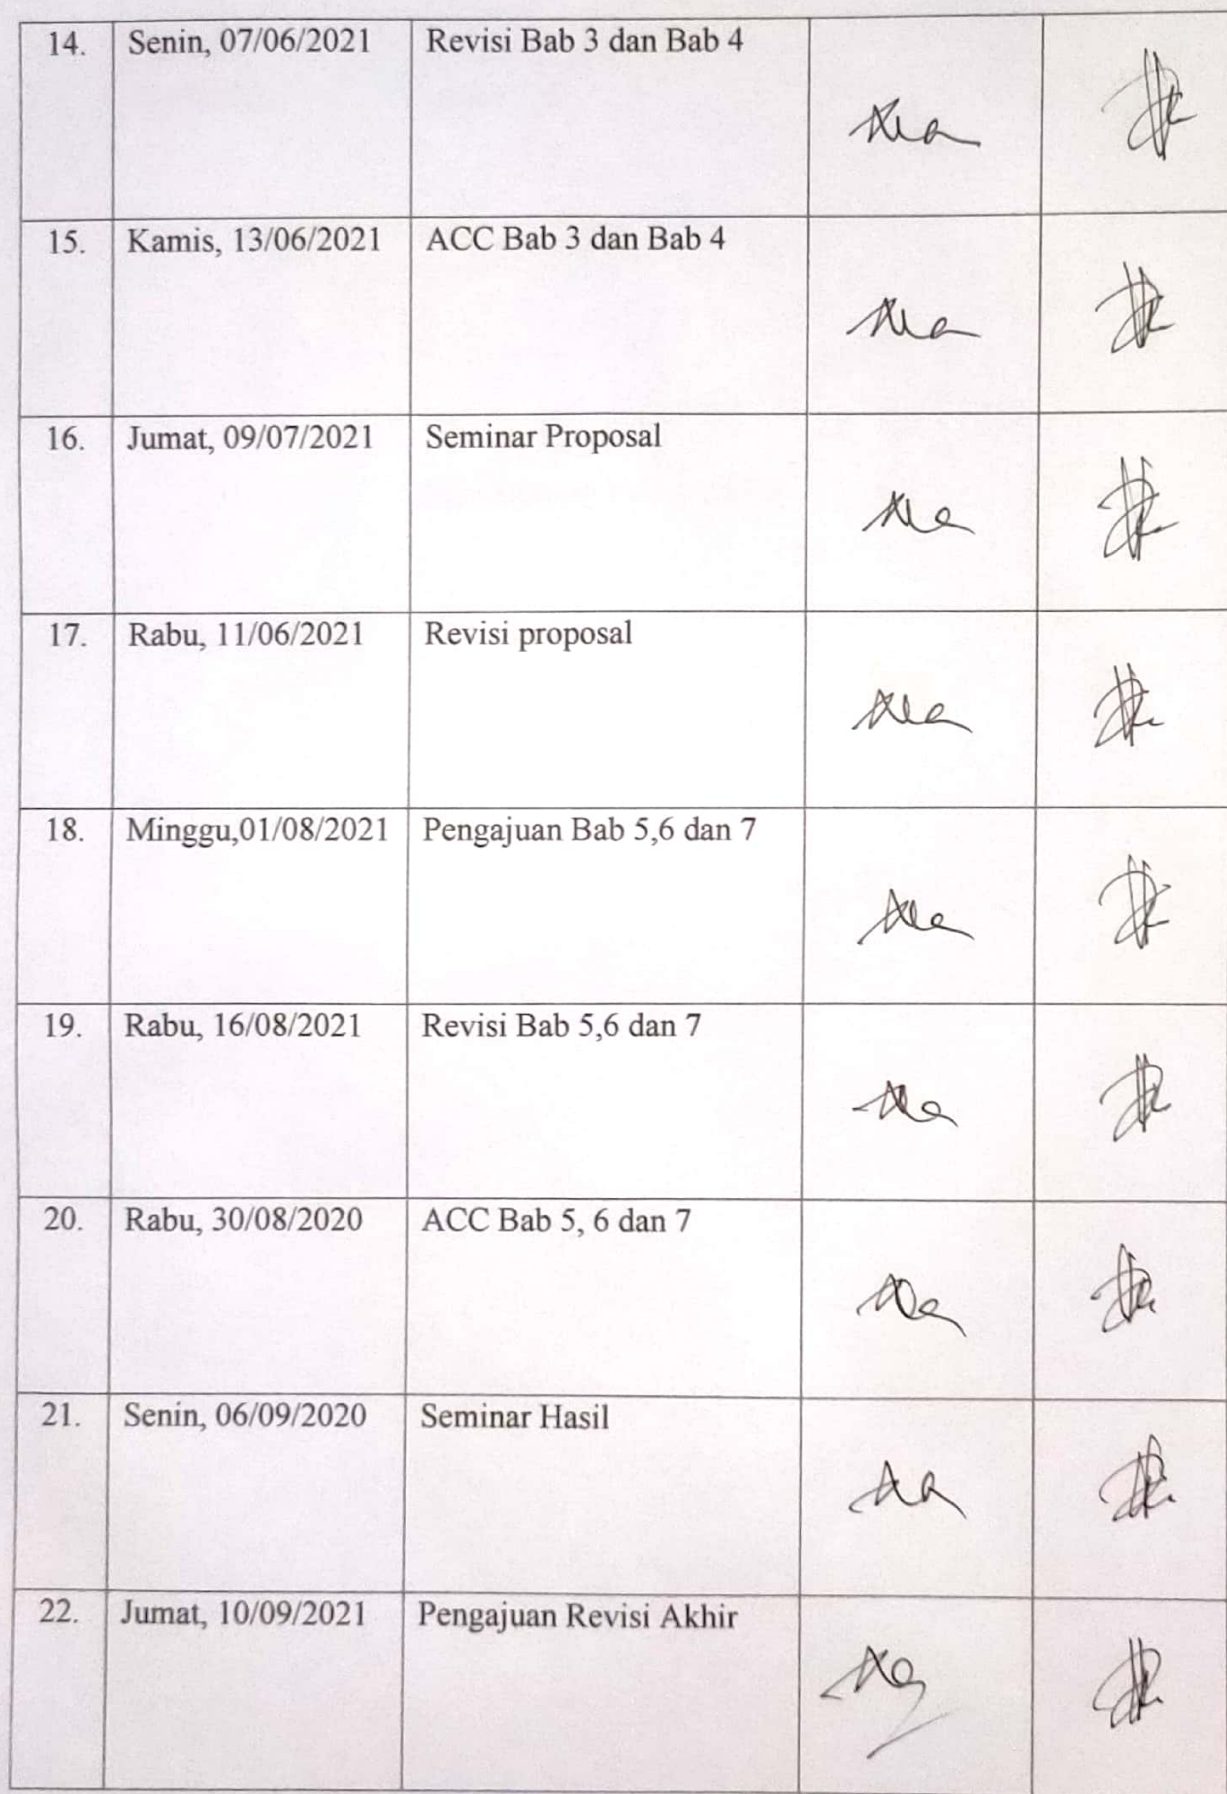 14. Senin, 07/06/2021 Revisi Bab 3 dan Bab 4
15. Kamis, 13/06/2021 ACC Bab 3 dan Bab 4
16. Jumat, 09/07/2021 Seminar Proposal
17. Rabu, 11/06/2021 Revisi proposal
18. Minggu,01/08/2021 Pengajuan Bab 5,6 dan 7
19. Rabu, 16/08/2021 Revisi Bab 5,6 dan 7
20. Rabu, 30/08/2020 ACC Bab 5, 6 dan 7
21. Senin, 06/09/2020 Seminar Hasil
22. Jumat, 10/09/2021 Pengajuan Revisi Akhir